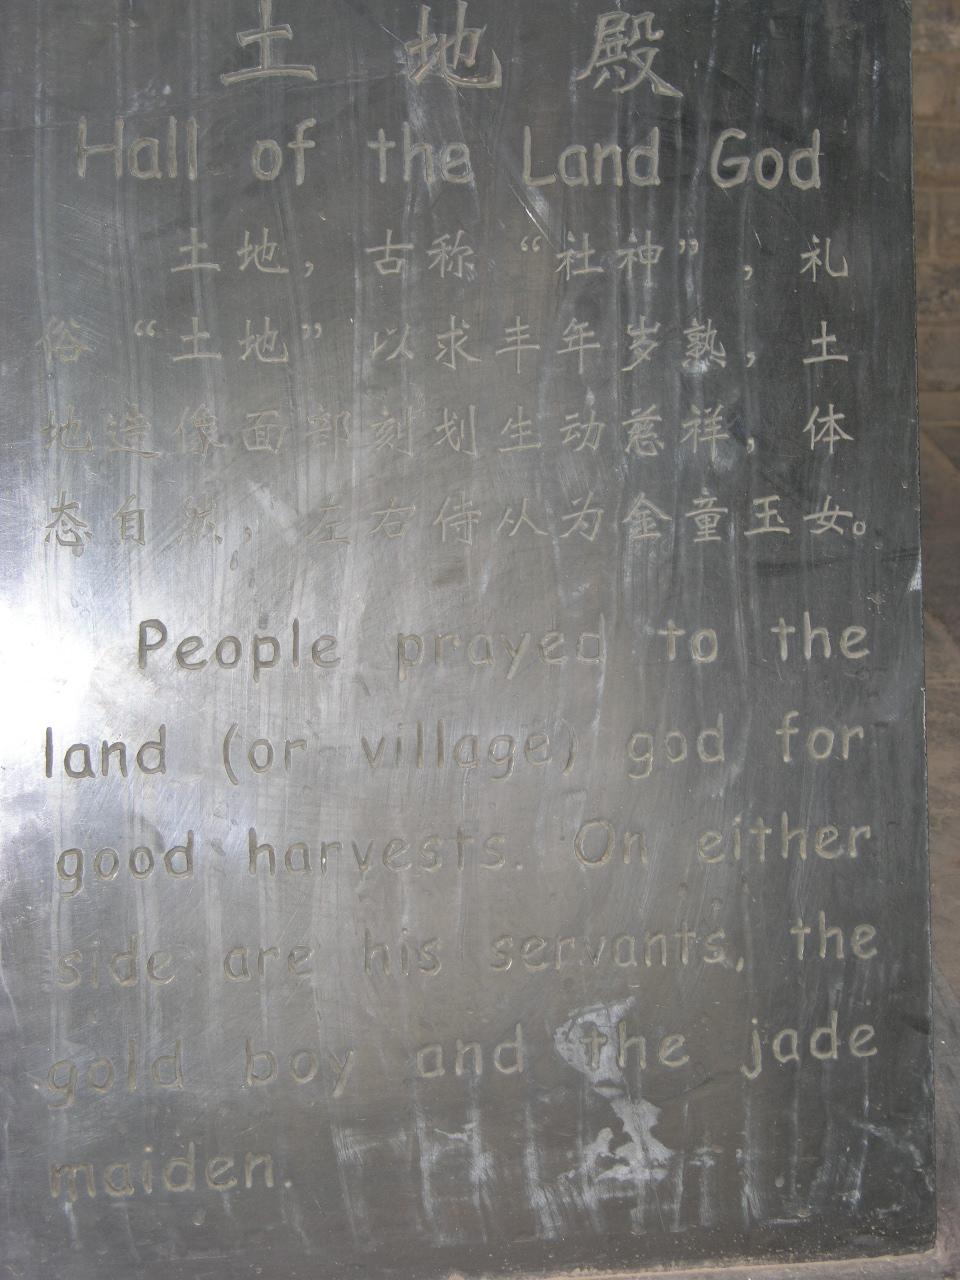 土地殿
Hall of the Land God
土地，古称“社神”，礼
俗“土地”以求丰年岁熟，土
地造像面部刻划生动慈祥，体
态自然，左右侍从为金童玉女。
People prayed to the
land (or village) god for
good harvests. On either
side are his servants, the
gold boy and the jade
maiden.